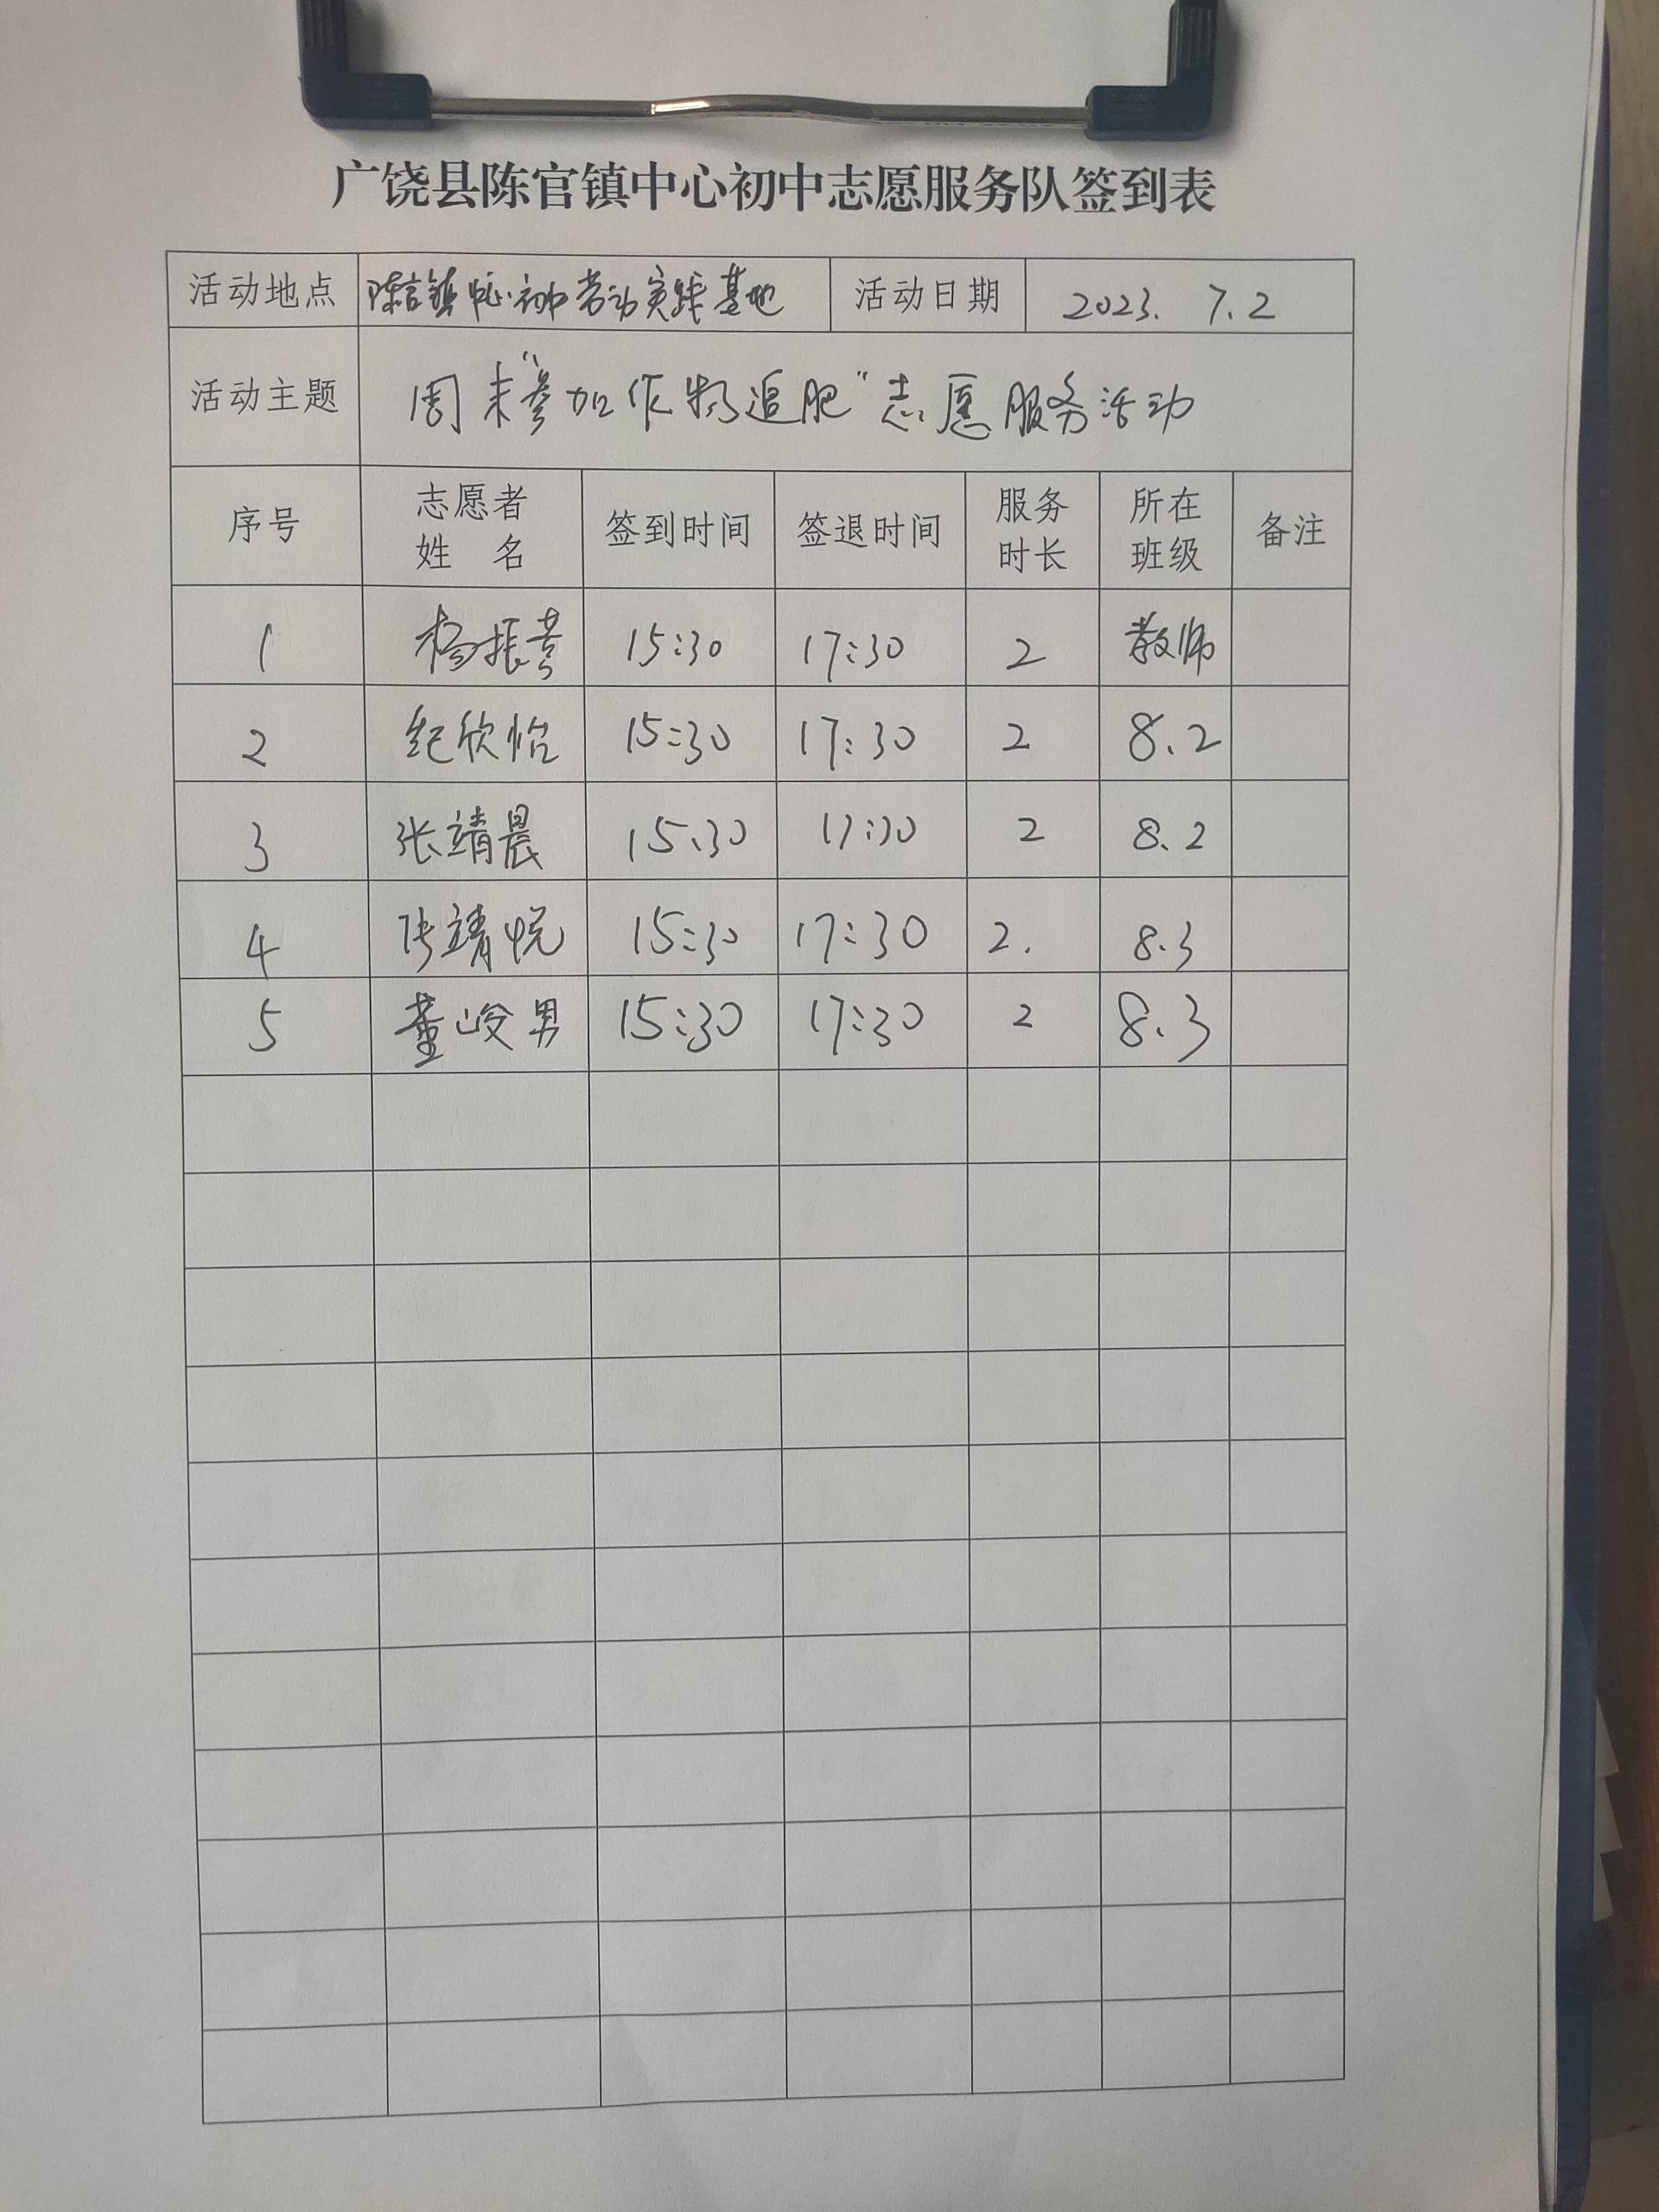 广饶县陈官镇中心初中志愿服务队签到表
活动地点 陈官镇中心初中劳动实践基地 活动日期 2023. 7.2
活动主题 周末“参加作物追肥”志愿服务活动
序号 志愿者姓 名 签到时间 签退时间 服务时长 所在班级 备注
1 杨振 15:30 17:30 2 教师
2 纪欣怡 15:30 17:30 2 8.2
3 张靖晨 15:30 17:30 2 8.2
4 张靖悦 15:30 17:30 2. 8.3
5 董峻男 15:30 17:30 2 8.3